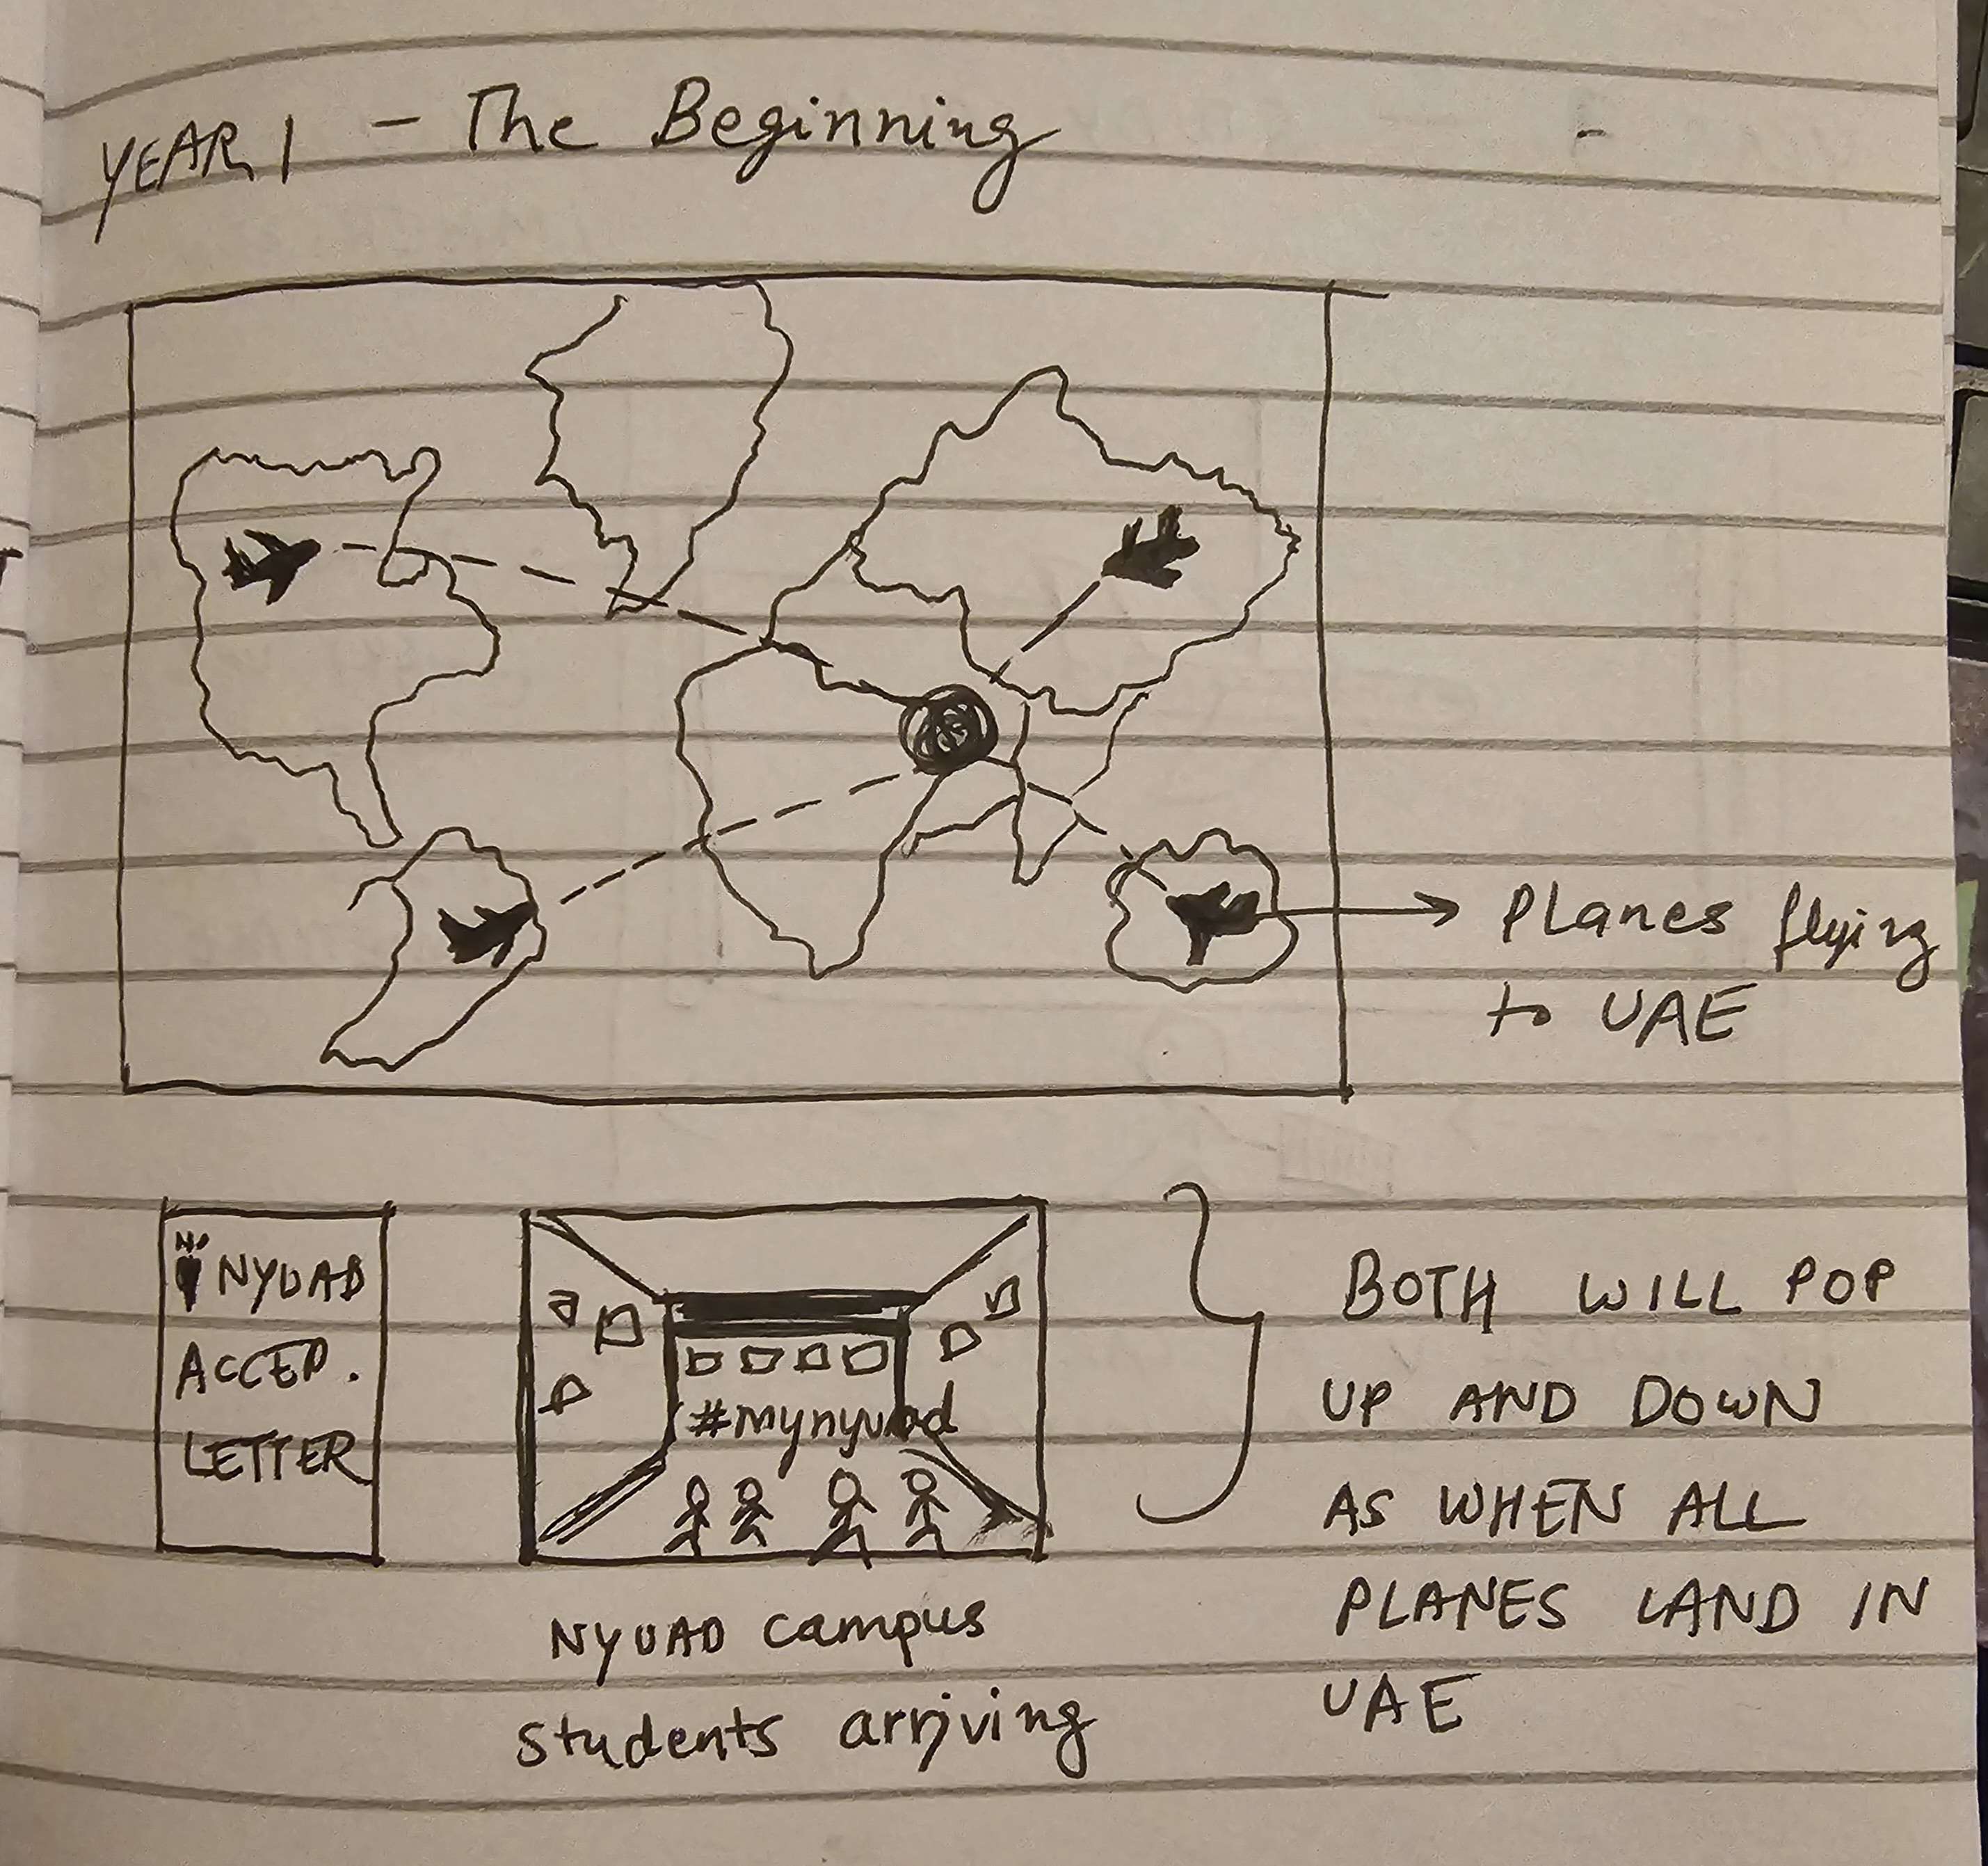 YEAR 1 - The Beginning
Planes flying
to UAE
NYUAD
ACCEP.
LETTER
#mynyuad
NYUAD campus
students arriving
BOTH WILL POP
UP AND DOWN
AS WHEN ALL
PLANES LAND IN
UAE